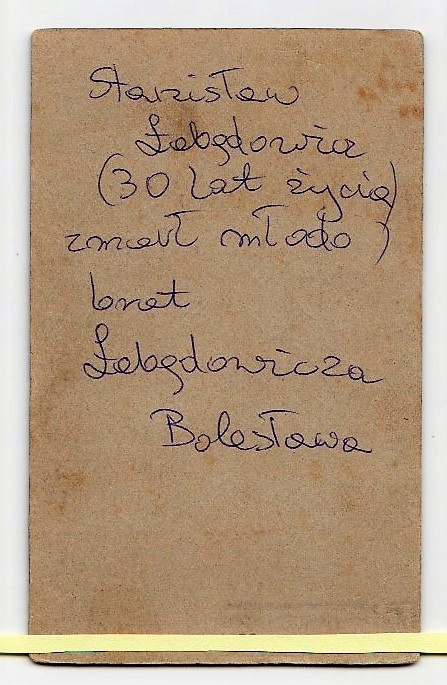 Stanisław
Łabędowicz
(30 lat życia)
zmarł młodo )
brat
Łabędowicza
Bolesława